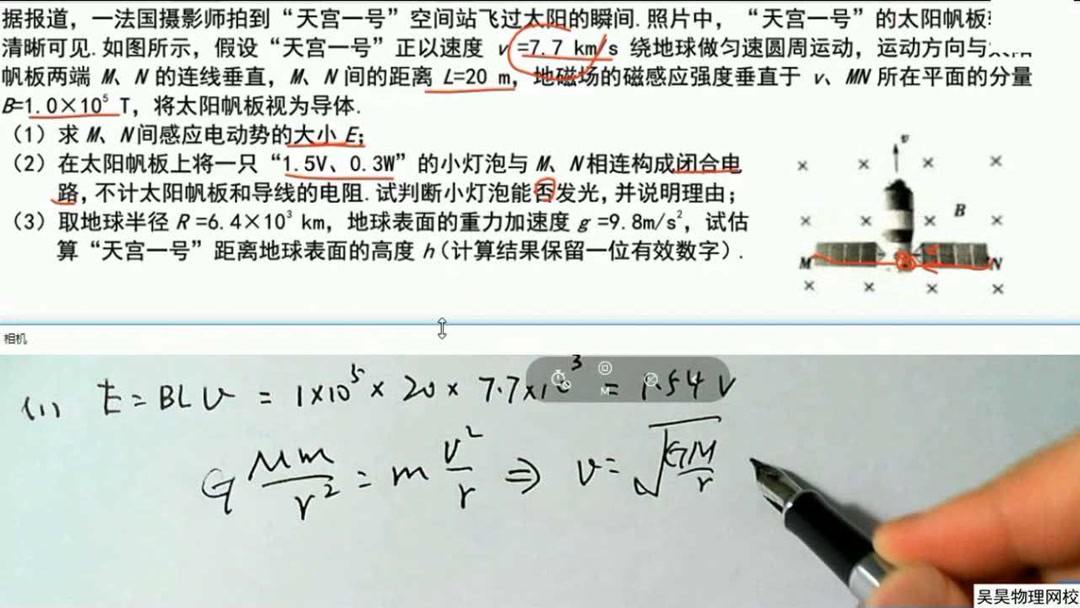 据报道，一法国摄影师拍到“天宫一号”空间站飞过太阳的瞬间.照片中，“天宫一号”的太阳帆板
清晰可见.如图所示，假设“天宫一号”正以速度 v=7.7 km/s 绕地球做匀速圆周运动，运动方向与太阳
帆板两端 M、N 的连线垂直，M、N 间的距离 L=20 m，地磁场的磁感应强度垂直于 v、MN 所在平面的分量
B=1.0×10⁵ T，将太阳帆板视为导体.
（1）求 M、N间感应电动势的大小 E；
（2）在太阳帆板上将一只“1.5V、0.3W”的小灯泡与 M、N相连构成闭合电
路，不计太阳帆板和导线的电阻.试判断小灯泡能否发光，并说明理由；
（3）取地球半径 R=6.4×10³ km，地球表面的重力加速度 g=9.8m/s²，试估
算“天宫一号”距离地球表面的高度 h（计算结果保留一位有效数字）.
v
B
M
N
相机
(1) E = BLv = 1×10⁵ × 20 × 7.7×10³ = 1.54 V
G Mm/r² = m v²/r ⇒ v = √(GM/r)
吴昊物理网校